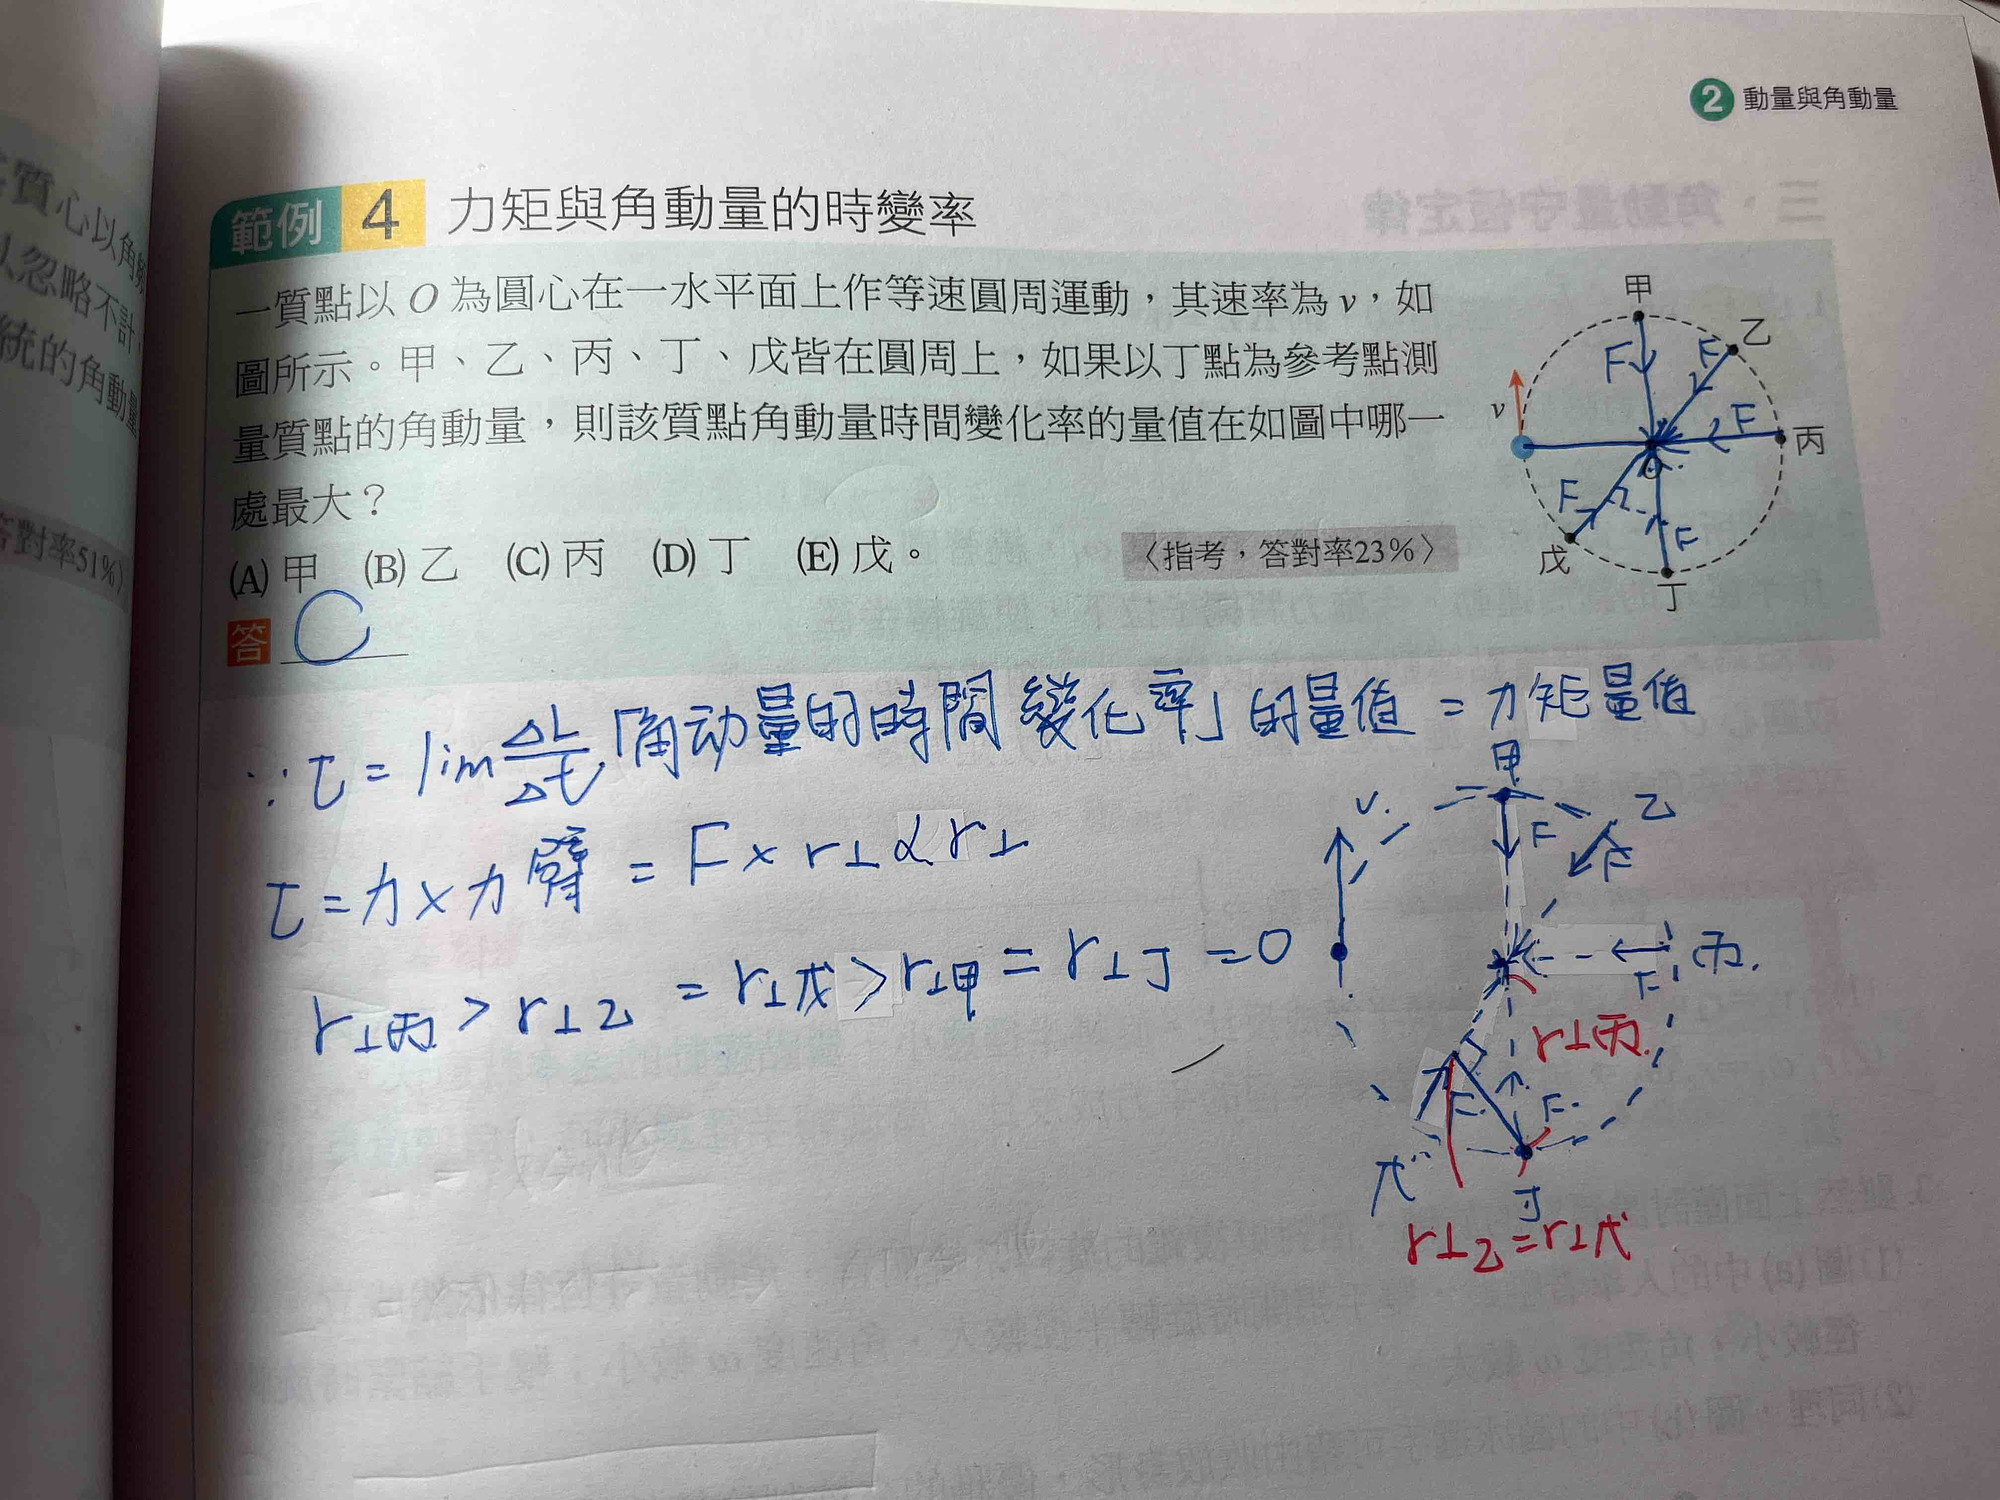 2 動量與角動量
範例 4 力矩與角動量的時變率
一質點以 O 為圓心在一水平面上作等速圓周運動，其速率為 v，如
圖所示。甲、乙、丙、丁、戊皆在圓周上，如果以丁點為參考點測
量質點的角動量，則該質點角動量時間變化率的量值在如圖中哪一
處最大？
(A) 甲 (B) 乙 (C) 丙 (D) 丁 (E) 戊。
〈指考，答對率23%〉
答 C
甲
乙
F
F
v
F
丙
O
F
F
戊
丁
∵ τ = lim ΔL/Δt,「角动量的時間變化率」的量值 = 力矩量值
τ = 力 × 力臂 = F × r⊥ ∝ r⊥
r⊥丙 > r⊥乙 = r⊥戊 > r⊥甲 = r⊥丁 = 0
甲
v.
乙
F
F
丙.
F
r⊥丙.
F.
F.
戊
丁
r⊥乙 = r⊥戊
質心以角
以忽略不計
統的角動量
答對率51%〉